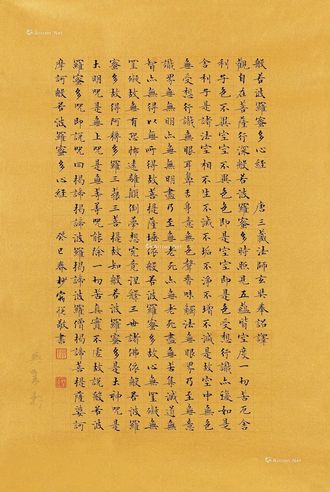 般若波羅蜜多心經 唐三藏法師玄奘奉詔譯
觀自在菩薩行深般若波羅蜜多時照見五蘊皆空度一切苦厄舍
利子色不異空空不異色色即是空空即是色受想行識亦復如是
舍利子是諸法空相不生不滅不垢不淨不增不減是故空中無色
無受想行識無眼耳鼻舌身意無色聲香味觸法無眼界乃至無意
識界無無明亦無無明盡乃至無老死亦無老死盡無苦集滅道無
智亦無得以無所得故菩提薩埵依般若波羅蜜多故心無罣礙無
罣礙故無有恐怖遠離顛倒夢想究竟涅槃三世諸佛依般若波羅
蜜多故得阿耨多羅三藐三菩提故知般若波羅蜜多是大神咒是
大明咒是無上咒是無等等咒能除一切苦真實不虛故說般若波
羅蜜多咒即說咒曰揭諦揭諦波羅揭諦波羅僧揭諦菩提薩婆訶
摩訶般若波羅蜜多心經 癸巳春 敬書
Artron.Net